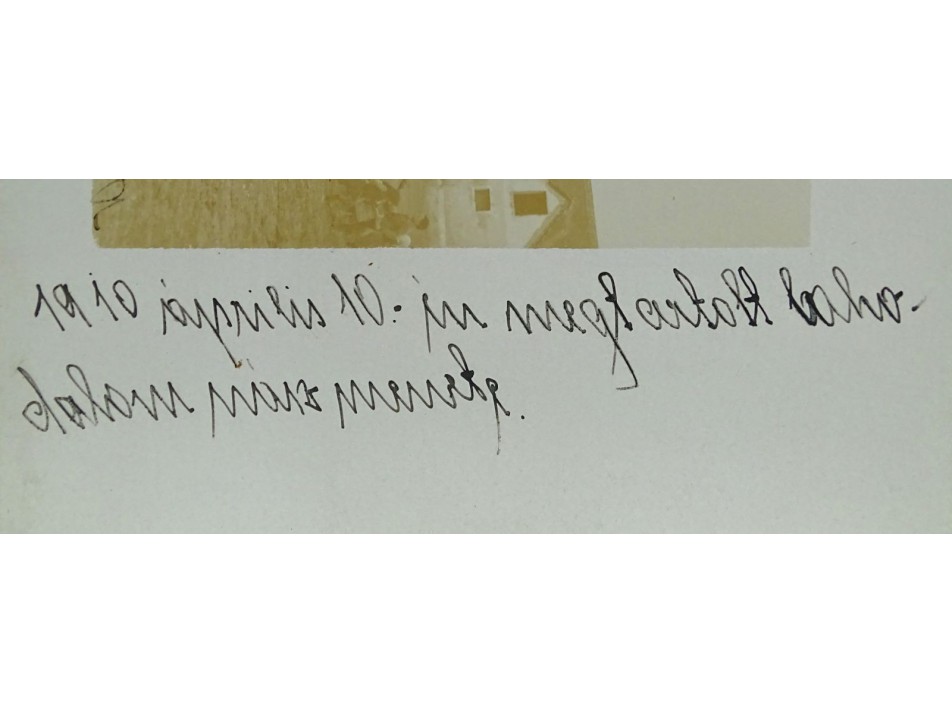 1910 április 10.-én megtartott lako-
dalom násx menete.